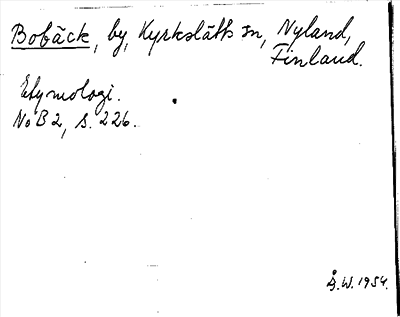 Bobäck, by, Kyrkslätts sn, Nyland,
Finland.
Etymologi.
NoB 2, s. 226.
Å.W. 1954.